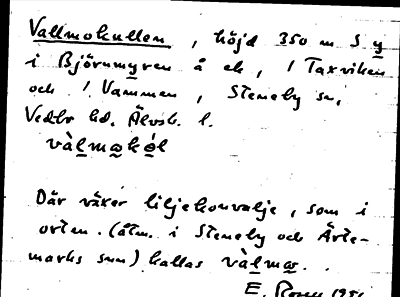 Vallmokullen, höjd 350 m S y
i Björnmyren å ek, / Taxviken
och / Vammen, Steneby sn,
Vedbo hd. Älvsb. l.
vàlmakól
Där växer liljekonvalje, som i
orten (åtm. i Steneby och Ärte-
marks snn) kallas vàlmar.
E.